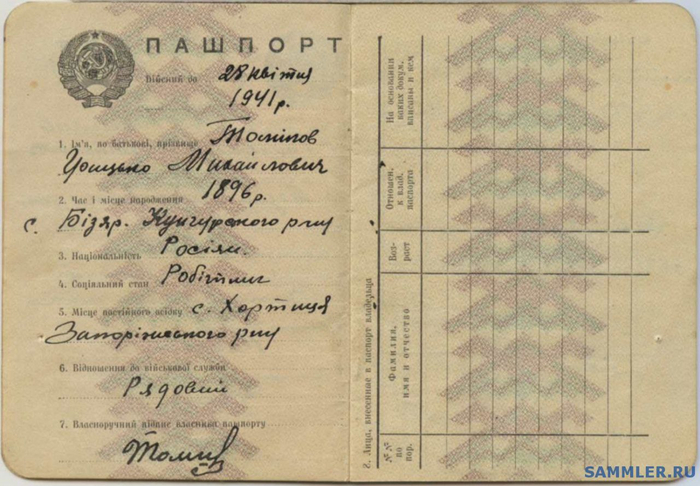 ПАШПОРТ
Дійсний до 28 квітня
1941 р.
1. Ім'я, по батькові, прізвище
Грицько Михайлович
2. Час і місце народження 1896 р.
с. Бізяр. Кунгурского р-ну
3. Національність Росіян.
4. Соціяльний стан Робітник
5. Місце постійного осідку с. Хортиця
Запоріжського р-ну
6. Відношення до військової служби
Рядовий
7. Власноручний підпис власника пашпорту
8. Лица, внесенные в паспорт владельца
№ №
по
пор.
Фамилия,
имя и отчество
Воз-
раст
Отношен.
к влад.
паспорта
На основании
каких докум.
вписаны в нем
SAMMLER.RU